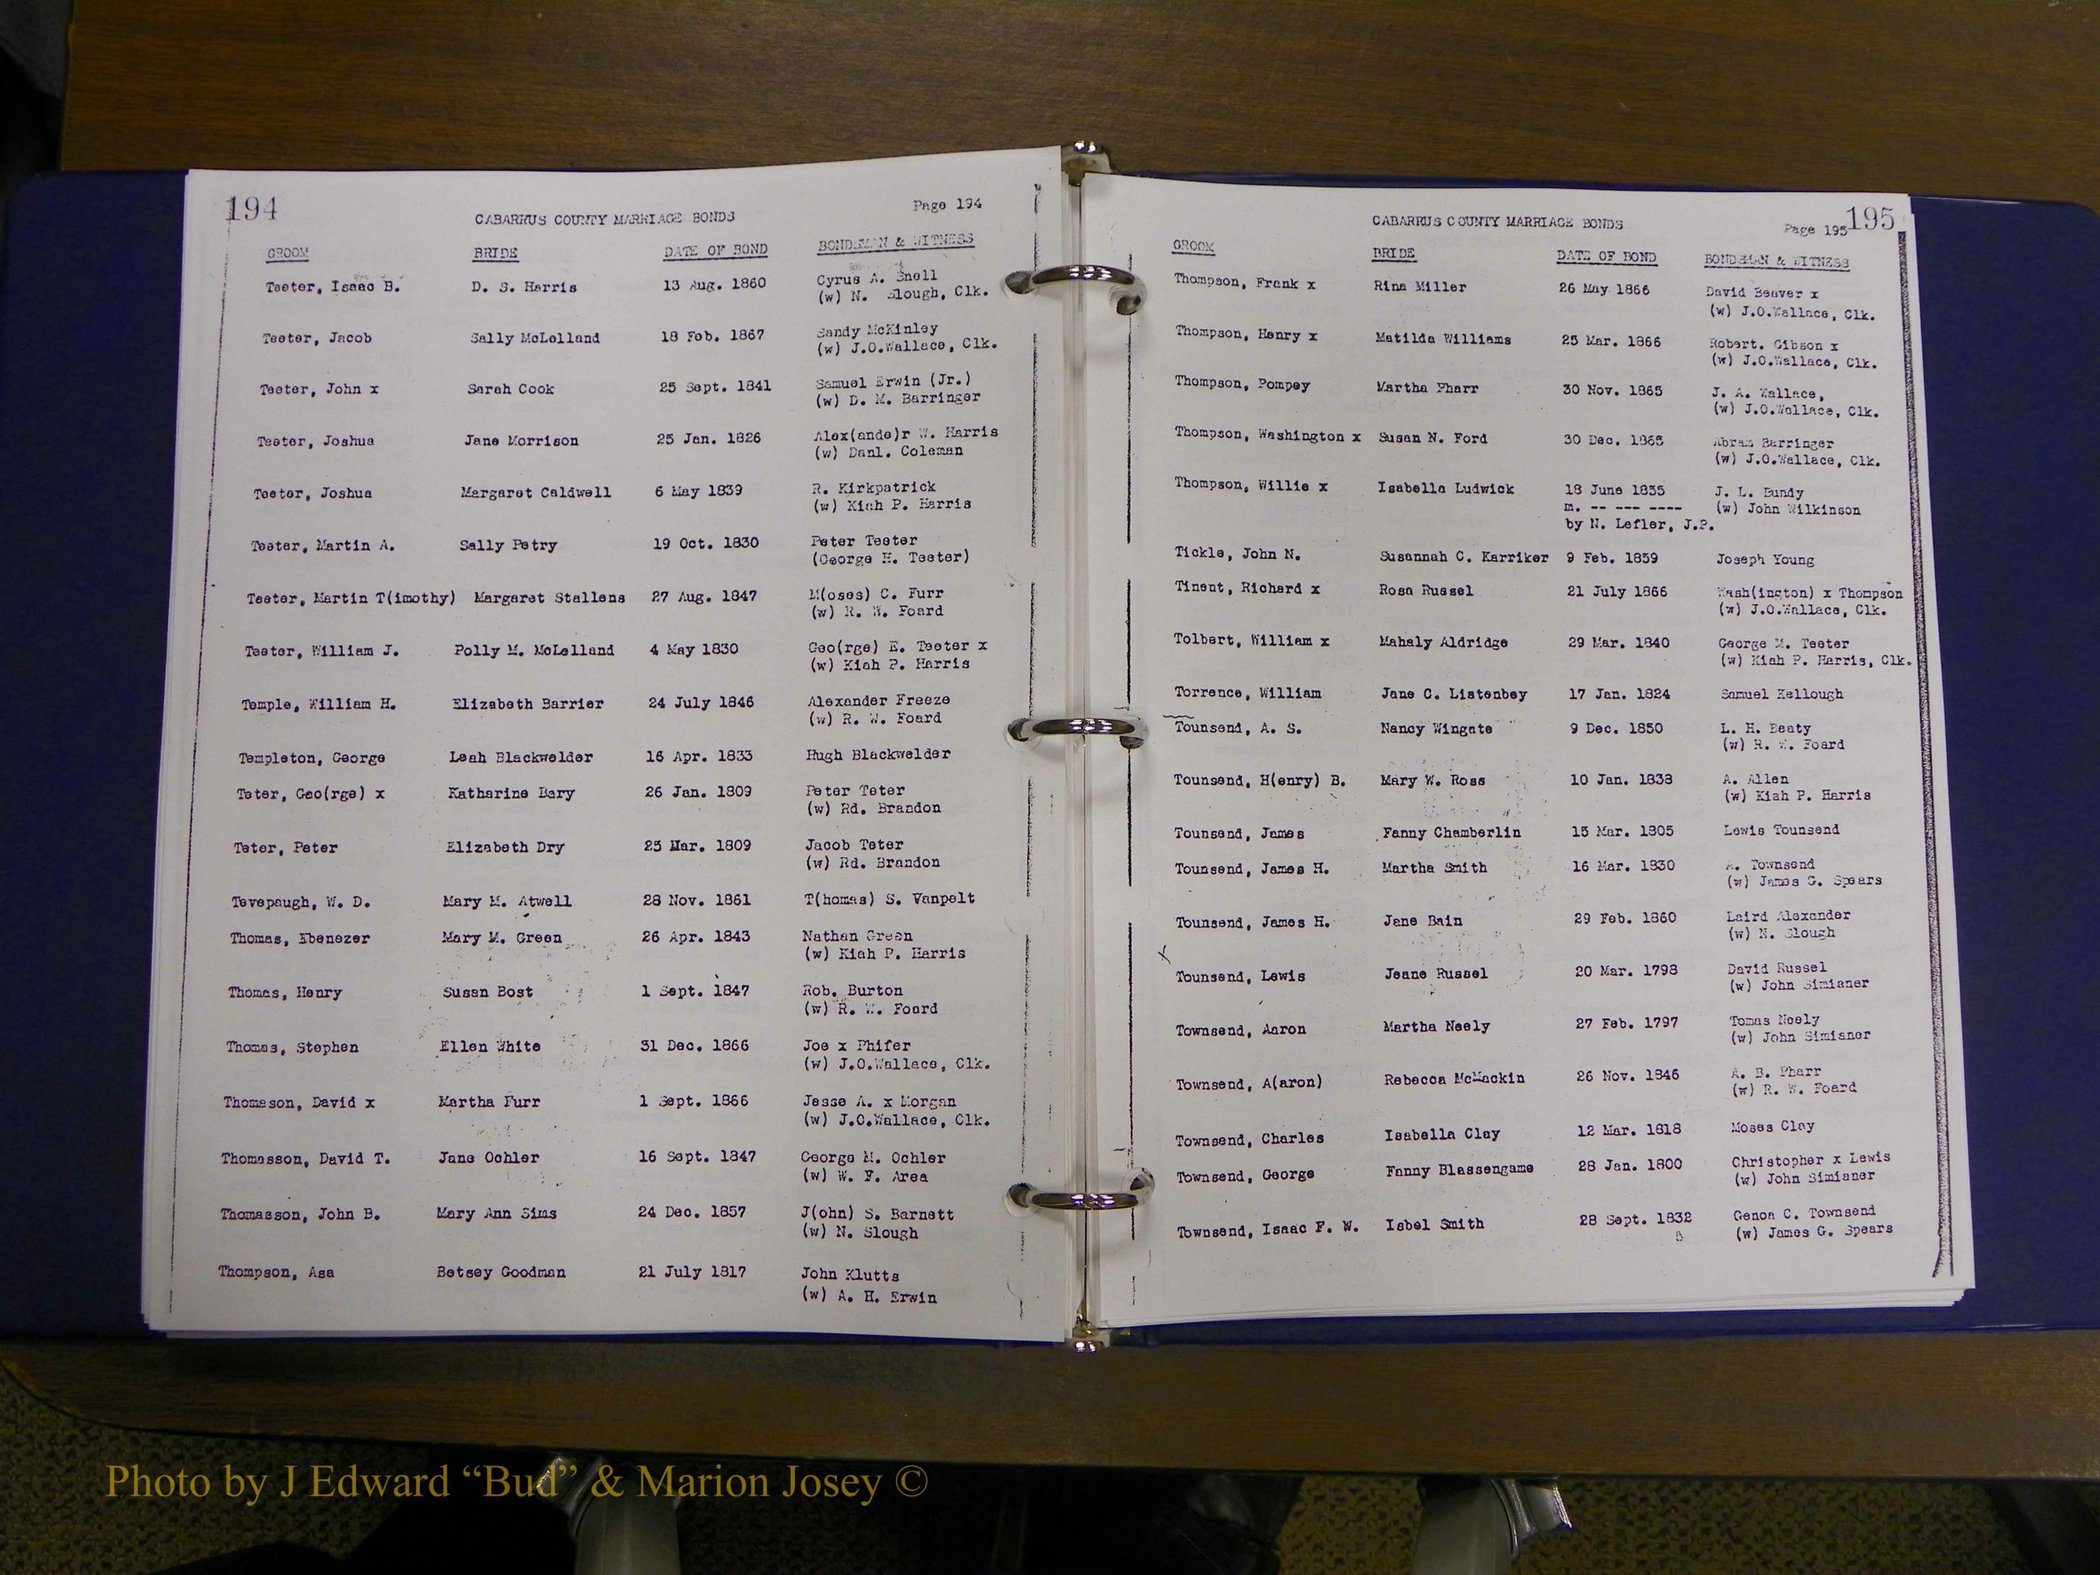 194
CABARRUS COUNTY MARRIAGE BONDS
Page 194
GROOM BRIDE DATE OF BOND BONDSMAN & WITNESS
Teeter, Isaac B. D. S. Harris 13 Aug. 1860 Cyrus A. Snell
(w) N. Slough, Clk.
Teeter, Jacob Sally McLelland 18 Feb. 1867 Sandy McKinley
(w) J.O.Wallace, Clk.
Teeter, John x Sarah Cook 25 Sept. 1841 Samuel Erwin (Jr.)
(w) D. M. Barringer
Teeter, Joshua Jane Morrison 25 Jan. 1826 Alex(ande)r W. Harris
(w) Danl. Coleman
Teeter, Joshua Margaret Caldwell 6 May 1839 R. Kirkpatrick
(w) Kiah P. Harris
Teeter, Martin A. Sally Petry 19 Oct. 1830 Peter Teeter
(George H. Teeter)
Teeter, Martin T(imothy) Margaret Stallens 27 Aug. 1847 M(oses) C. Furr
(w) R. W. Foard
Teeter, William J. Polly M. McLelland 4 May 1830 Geo(rge) E. Teeter x
(w) Kiah P. Harris
Temple, William H. Elizabeth Barrier 24 July 1846 Alexander Freeze
(w) R. W. Foard
Templeton, George Leah Blackwelder 16 Apr. 1833 Hugh Blackwelder
Teter, Geo(rge) x Katharine Bary 26 Jan. 1809 Peter Teter
(w) Rd. Brandon
Teter, Peter Elizabeth Dry 25 Mar. 1809 Jacob Teter
(w) Rd. Brandon
Tevepaugh, W. D. Mary M. Atwell 28 Nov. 1861 T(homas) S. Vanpelt
Thomas, Ebenezer Mary M. Green 26 Apr. 1843 Nathan Green
(w) Kiah P. Harris
Thomas, Henry Susan Bost 1 Sept. 1847 Rob. Burton
(w) R. W. Foard
Thomas, Stephen Ellen White 31 Dec. 1866 Joe x Phifer
(w) J.O.Wallace, Clk.
Thomason, David x Martha Furr 1 Sept. 1866 Jesse A. x Morgan
(w) J.O.Wallace, Clk.
Thomasson, David T. Jane Ochler 16 Sept. 1847 George M. Ochler
(w) W. F. Area
Thomasson, John B. Mary Ann Sims 24 Dec. 1857 J(ohn) S. Barnett
(w) N. Slough
Thompson, Asa Betsey Goodman 21 July 1817 John Klutts
(w) A. H. Erwin
CABARRUS COUNTY MARRIAGE BONDS
Page 195 195
GROOM BRIDE DATE OF BOND BONDSMAN & WITNESS
Thompson, Frank x Rina Miller 26 May 1866 David Beaver x
(w) J.O.Wallace, Clk.
Thompson, Henry x Matilda Williams 25 Mar. 1866 Robert. Gibson x
(w) J.O.Wallace, Clk.
Thompson, Pompey Martha Pharr 30 Nov. 1865 J. A. Wallace,
(w) J.O.Wallace, Clk.
Thompson, Washington x Susan N. Ford 30 Dec. 1865 Abram Barringer
(w) J.O.Wallace, Clk.
Thompson, Willie x Isabella Ludwick 18 June 1855 J. L. Bundy
m. -- --- ---- (w) John Wilkinson
by N. Lefler, J.P.
Tickle, John N. Susannah C. Karriker 9 Feb. 1859 Joseph Young
Tinent, Richard x Rosa Russel 21 July 1866 Wash(ington) x Thompson
(w) J.O.Wallace, Clk.
Tolbert, William x Mahaly Aldridge 29 Mar. 1840 George M. Teeter
(w) Kiah P. Harris, Clk.
Torrence, William Jane C. Listenbey 17 Jan. 1824 Samuel Kellough
Tounsend, A. S. Nancy Wingate 9 Dec. 1850 L. H. Beaty
(w) R. W. Foard
Tounsend, H(enry) B. Mary W. Ross 10 Jan. 1838 A. Allen
(w) Kiah P. Harris
Tounsend, James Fanny Chamberlin 15 Mar. 1805 Lewis Tounsend
Tounsend, James H. Martha Smith 16 Mar. 1830 A. Townsend
(w) James G. Spears
Tounsend, James H. Jane Bain 29 Feb. 1860 Laird Alexander
(w) N. Slough
x
Tounsend, Lewis Jeane Russel 20 Mar. 1798 David Russel
(w) John Simianer
Townsend, Aaron Martha Neely 27 Feb. 1797 Tomas Neely
(w) John Simianer
Townsend, A(aron) Rebecca McMackin 26 Nov. 1846 A. B. Pharr
(w) R. W. Foard
Townsend, Charles Isabella Clay 12 Mar. 1818 Moses Clay
Townsend, George Fanny Blassengame 28 Jan. 1800 Christopher x Lewis
(w) John Simianer
Townsend, Isaac F. W. Isbel Smith 28 Sept. 1832 Genoa C. Townsend
(w) James G. Spears
Photo by J Edward “Bud” & Marion Josey ©